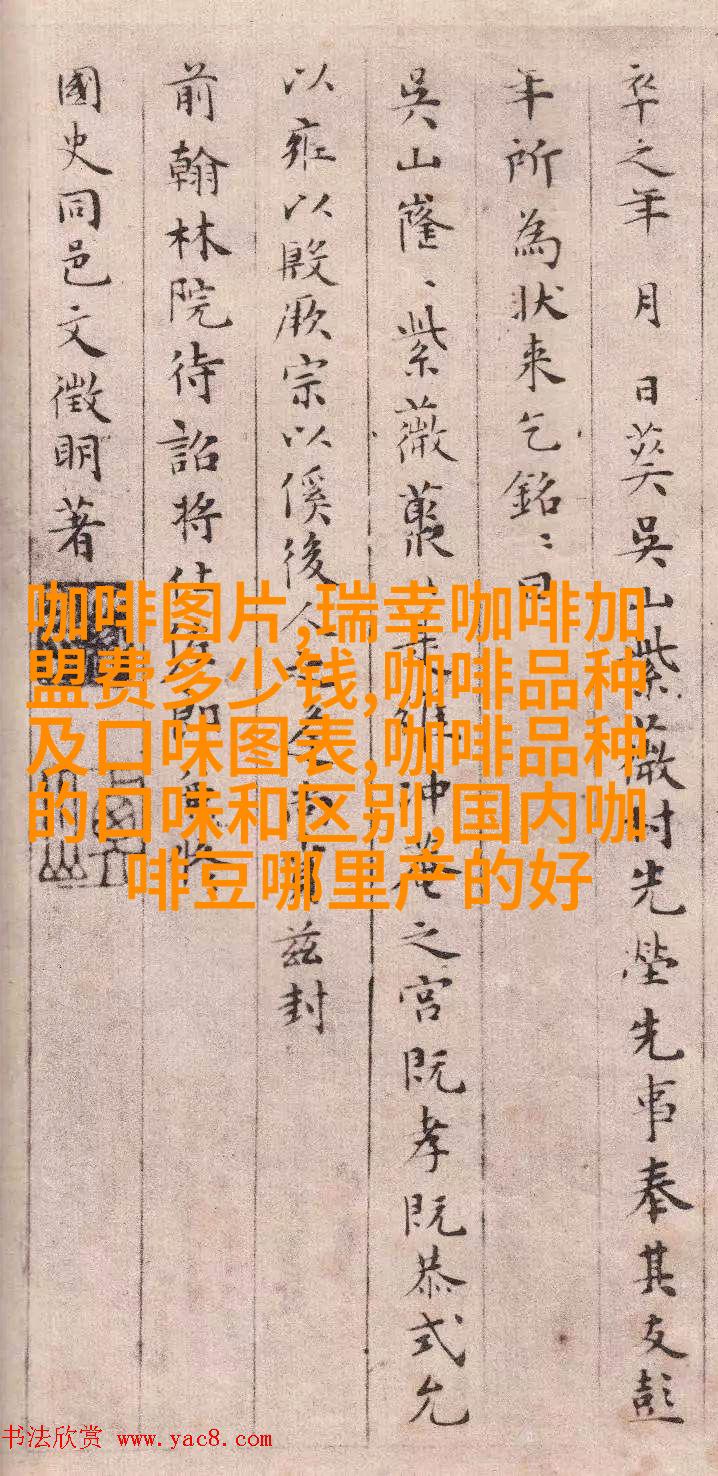 卒之年 月 日葬吳山紫薇村先塋先事奉其友彭
年所為狀來乞銘〻曰
吳山嶐〻紫薇叢
之宮既孝既恭式允
以雍以殷厥宗以傒後
茲封
前翰林院待詔將仕
國史同邑文徵明著
咖啡图片,瑞幸咖啡加
盟费多少钱,咖啡品种
及口味图表,咖啡品种
的口味和区别,国内咖
啡豆哪里产的好
书法欣赏 www.yac8.com